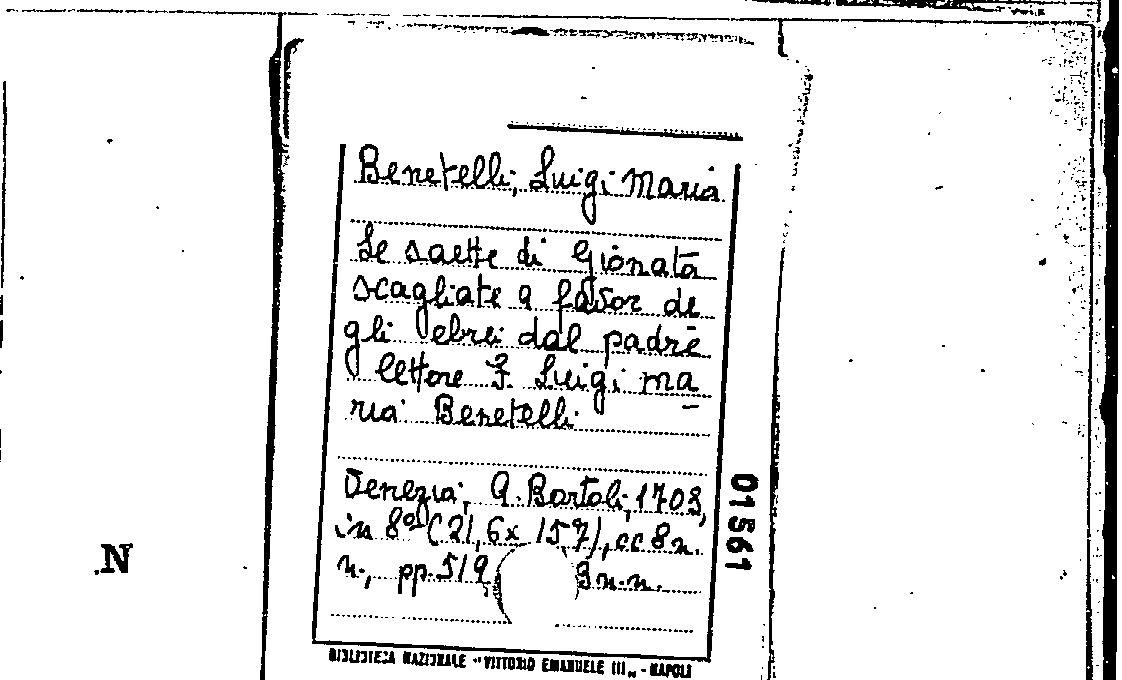 Benetelli, Luigi Maria
Le saette di Gionata
scagliate a favor de
gli ebrei dal padre
lettore F. Luigi Ma
ria Benetelli
Venezia, A. Bortoli, 1703,
in 8º (21,6x 157), cc 8 n.
n., pp. 519 3 n.n.
01561
.N
BIBLIOTECA NAZIONALE "VITTORIO EMANUELE III„ - NAPOLI